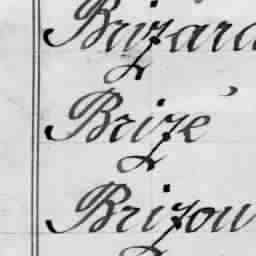 Brizard
Brizé
Brizou